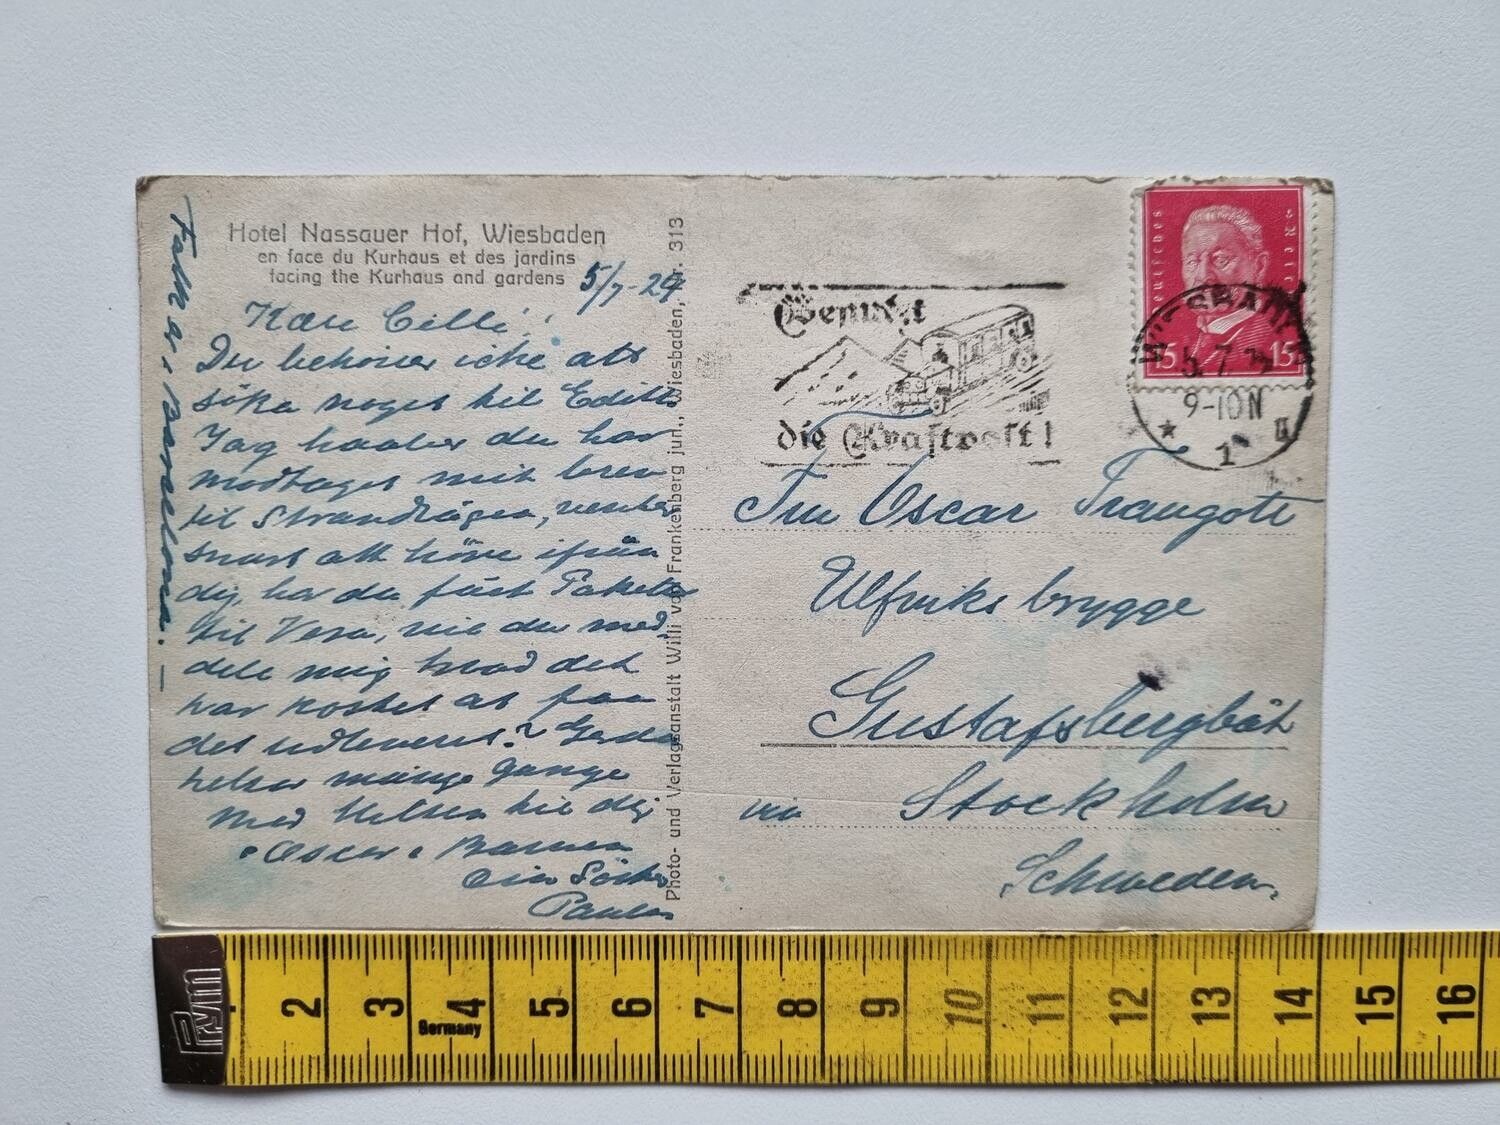 Hotel Nassauer Hof, Wiesbaden
en face du Kurhaus et des jardins
facing the Kurhaus and gardens
5/7-29
Kære Cilli!
Du behöver icke att
söka noget til Edith.
Jag haaber du har
modtaget mit brev
til Strandvägen, venter
snart att höre ifrån
dig, har du fået Paketen
til Vera, vil du med-
dele mig hvad det
har kostet at faa
det udleveret? Gerda
helser mange Gange
Med Hilsen til dig
Oscar & Barnen
din Söster
Paula
Photo- und Verlagsanstalt Willi von Frankenberg jun., Wiesbaden, Nr. 313
Benutzt
die Kraftpost!
Deutsches Reich
15 15
WIESBADEN
5.7.
9-10 N
★ 1 II
Fru Oscar Traugott
Ulfviks brygge
Gustafsbergbåt
via Stockholm
Schweden.
Prym
2 3 4 5 6 7 8 9 10 11 12 13 14 15 16
Germany